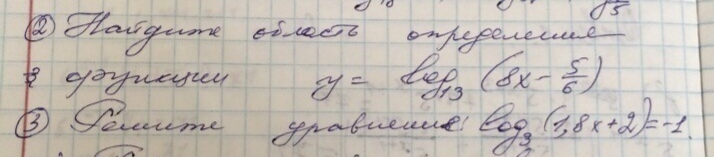 ② Найдите область определения
функции y = log₁₃ (8x - 5/6)
③ Решите уравнение: log₃ (1,8x+2) = -1.